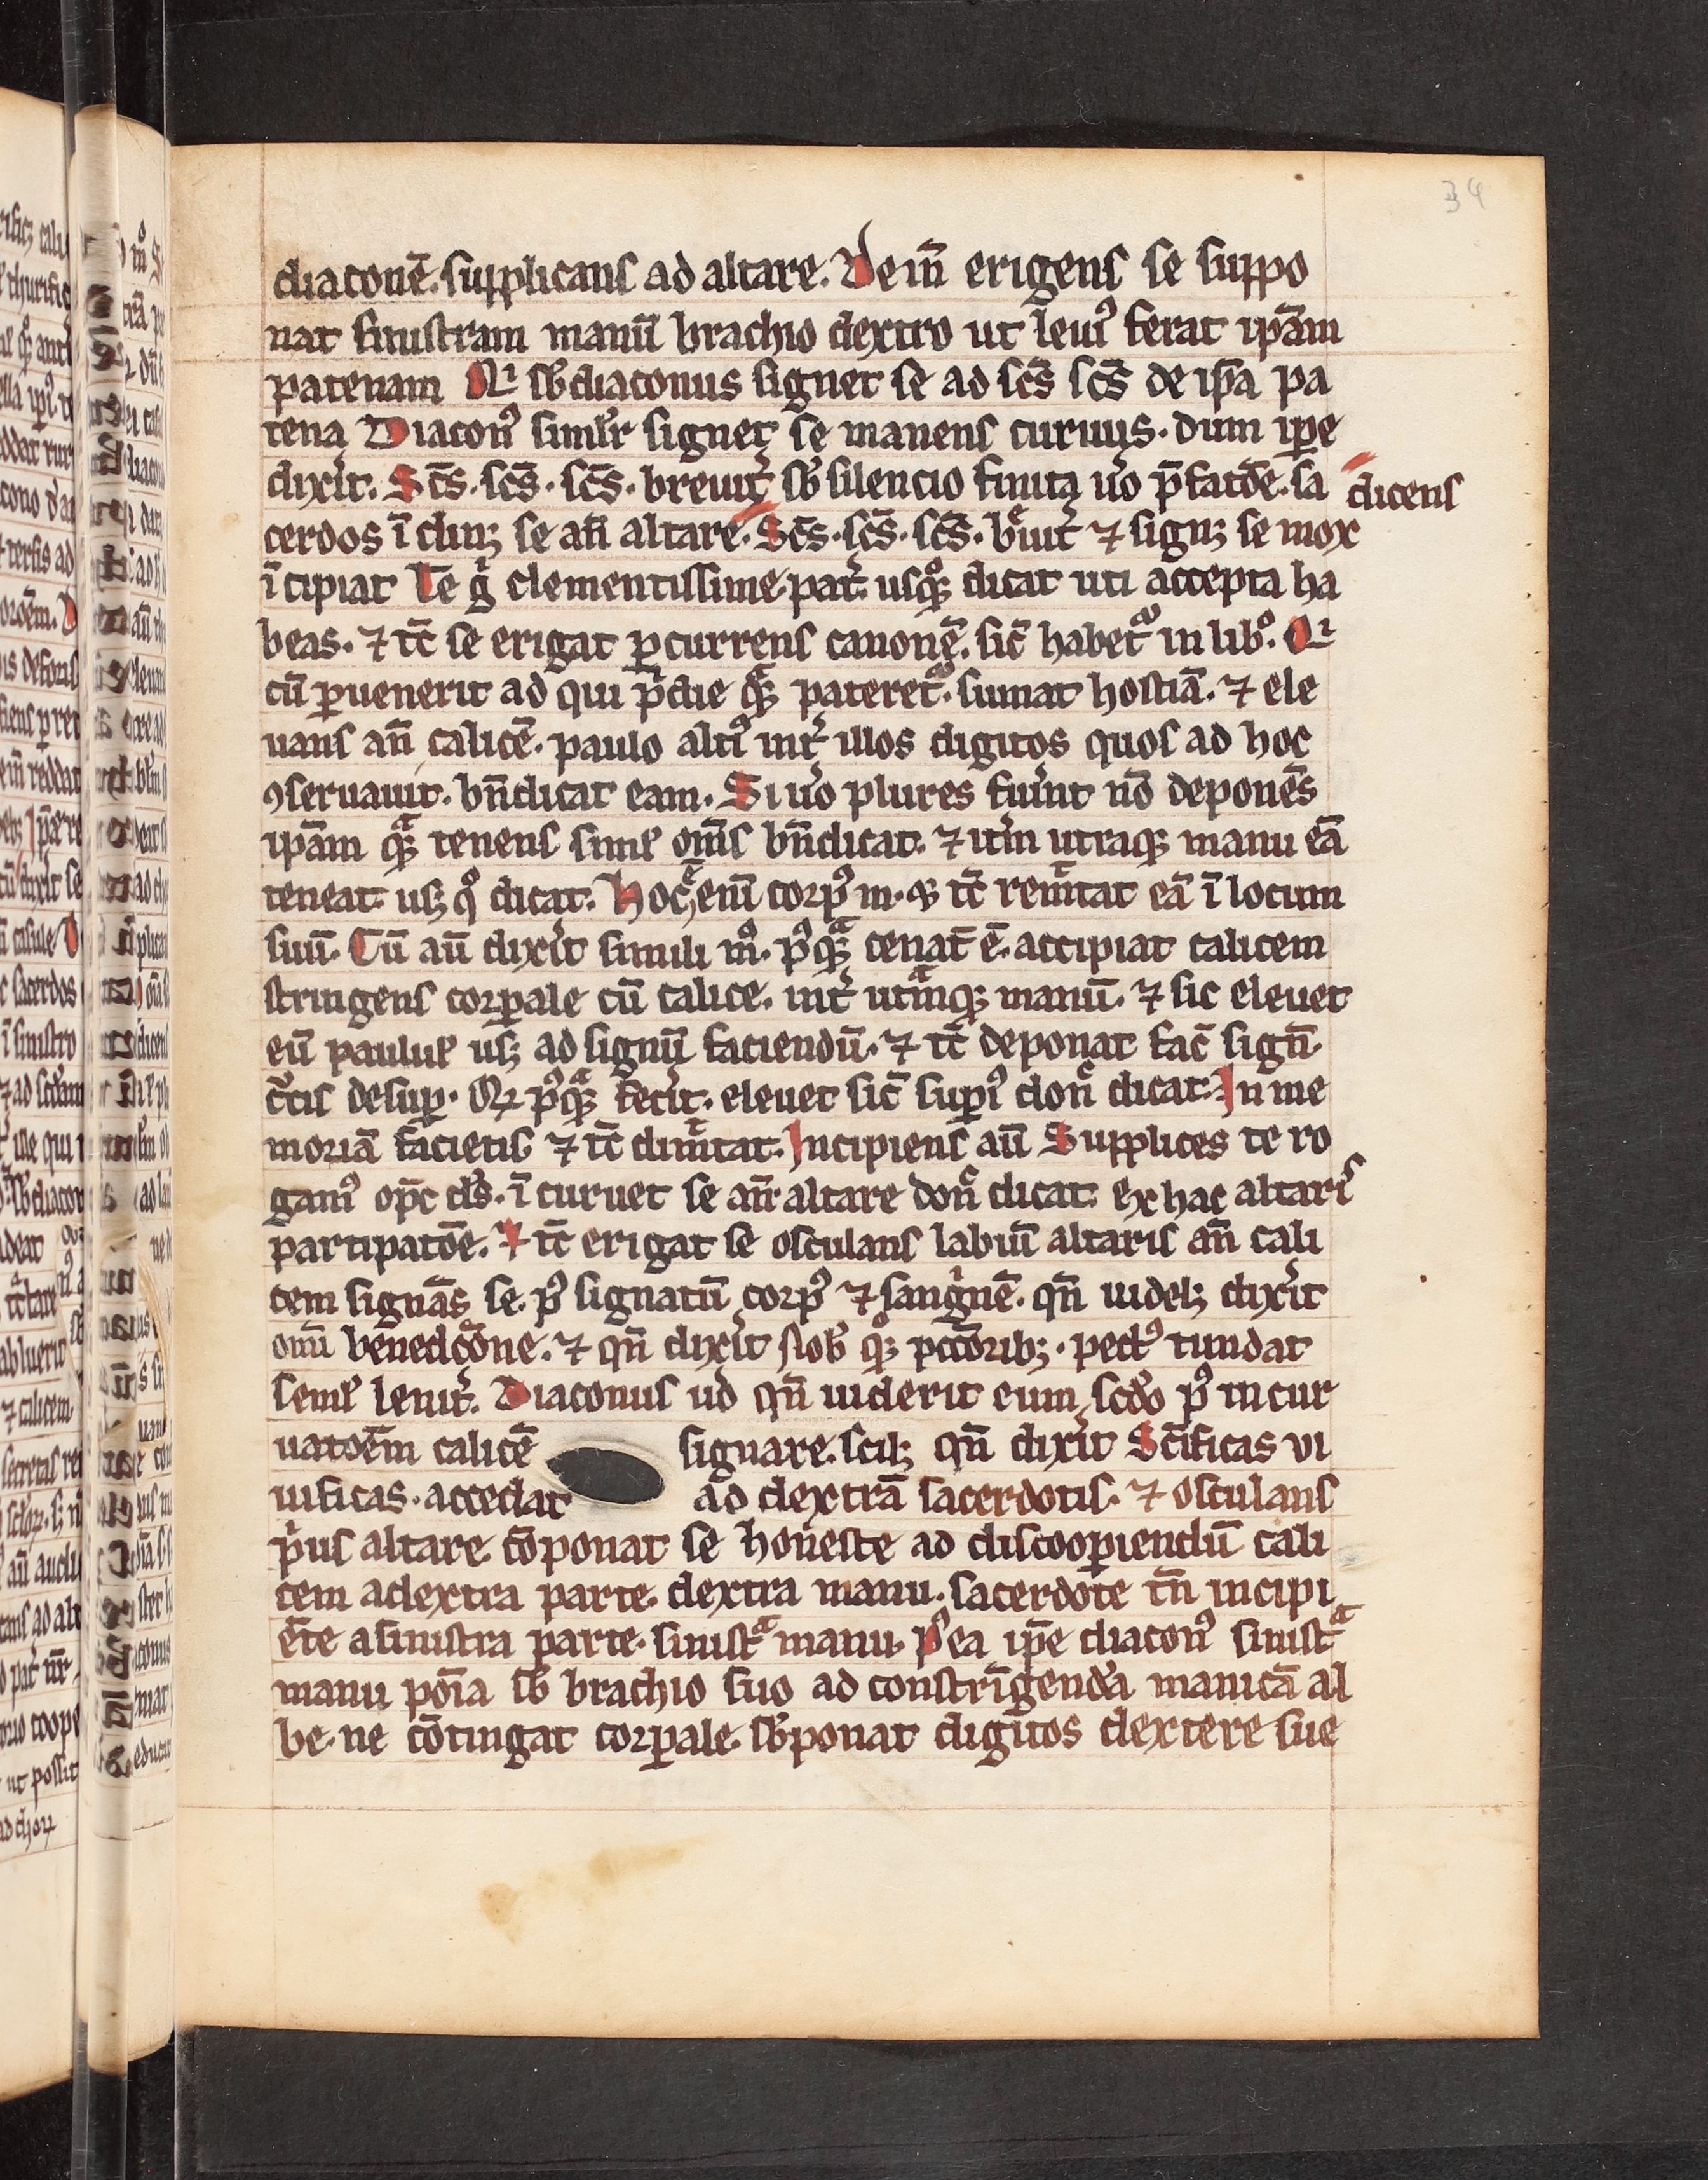 34
diaconē. supplicans ad altare. Dein̄ erigens se suppo
nat sinistram manū brachio dextro ut leuiꝰ ferat ip̄am
patenam Qͥ sb̄diaconus signet se ad sc̄s sc̄s de ip̄a pa
tena Diaconꝰ simlr̄ signet se manens curuus. dum ip̄e
dix̾it. Sc̄s. sc̄s. sc̄s. breuit̾ sb̄ silencio finita u̾o p̄fatōe. sa dicens
cerdos ī clin; se an̄ altare. Sc̄s. sc̄s. sc̄s. bͤuit̾ ⁊ sign; se mox
īcipiat Te gͥ clementissime pat̾. usqꝫͦ dicat uti accepta ha
beas. ⁊ tc̄ se erigat ꝑcurrens canonē. sic̄ habetᷣ in libͦ. Qͥ
cū ꝑuenerit ad qui p̄die qꝫͣ pateretᷣ. sumat hostiā. ⁊ ele
uans an̄ calicē. paulo altiꝰ int̾ illos digitos quos ad hoc
ꝯseruauit. bn̄dicat eam. Si u̾o plures fu̾int nō deponēs
ip̄am qꝫͣ tenens siml̾ om̄s bn̄dicat. ⁊ it̾m utraqꝫ manu eā
teneat. us; qͦ dicat. Hoc ē enī corpꝰ m. qꝫ tc̄ remͥtat eā ī locum
suū. Cū aū dix̾it simili mͦ. pꝰqꝫͣ cenat̄ ē. accipiat calicem
stringens corꝑale cū calice. int̾ utͣmqꝫ manū. ⁊ sic eleuet
eū paulul̾ us; ad signū faciendū. ⁊ tc̄ deponat fac̄ sign̄
c̄cis desuꝑ. Qꝫ pꝰqꝫͣ fec̾it. eleuet sic̄ suꝑiꝰ donͨ dicat. In me
moriā facietis ⁊ tc̄ dimͥtat. Incipiens aū Supplices te ro
gamꝰ op̄c ds̄. ī curuet se an̄ altare donͨ dicat. ex hac altaris
partipatōe. ⁊ tc̄ erigat se osculans labiū altaris an̄ cali
cem signās se. pꝰ signatū corpꝰ ⁊ sangͥnē. qn̄ uidel; dix̾it
om̄i benedcōne. ⁊ qn̄ dix̾it nob̾ qꝫͦ pccōrib;. pectꝰ tundat
seml̾ lenit̾. Diaconus ud qn̄ uiderit eum scd̾o pꝰ incur
uatōem calicē signare. scil; qn̄ dix̾it Sc̄ificas vi
uificas. accedat ad dextrā sacerdotis. ⁊ osculans
pͥus altare. cōponat se honeste ad discooꝑiendū cali
cem adextra parte. dextra manu. sacerdote tn̄ incipi
ēte asinistra parte. sinistͣ manu. Pꝰea ip̄e diaconꝰ sinistͣ
manu pōīa sb̄ brachio suo ad constrīgend̾a manicā al
be. ne cōtingat corꝑale. sb̄ponat digitos dextere sue